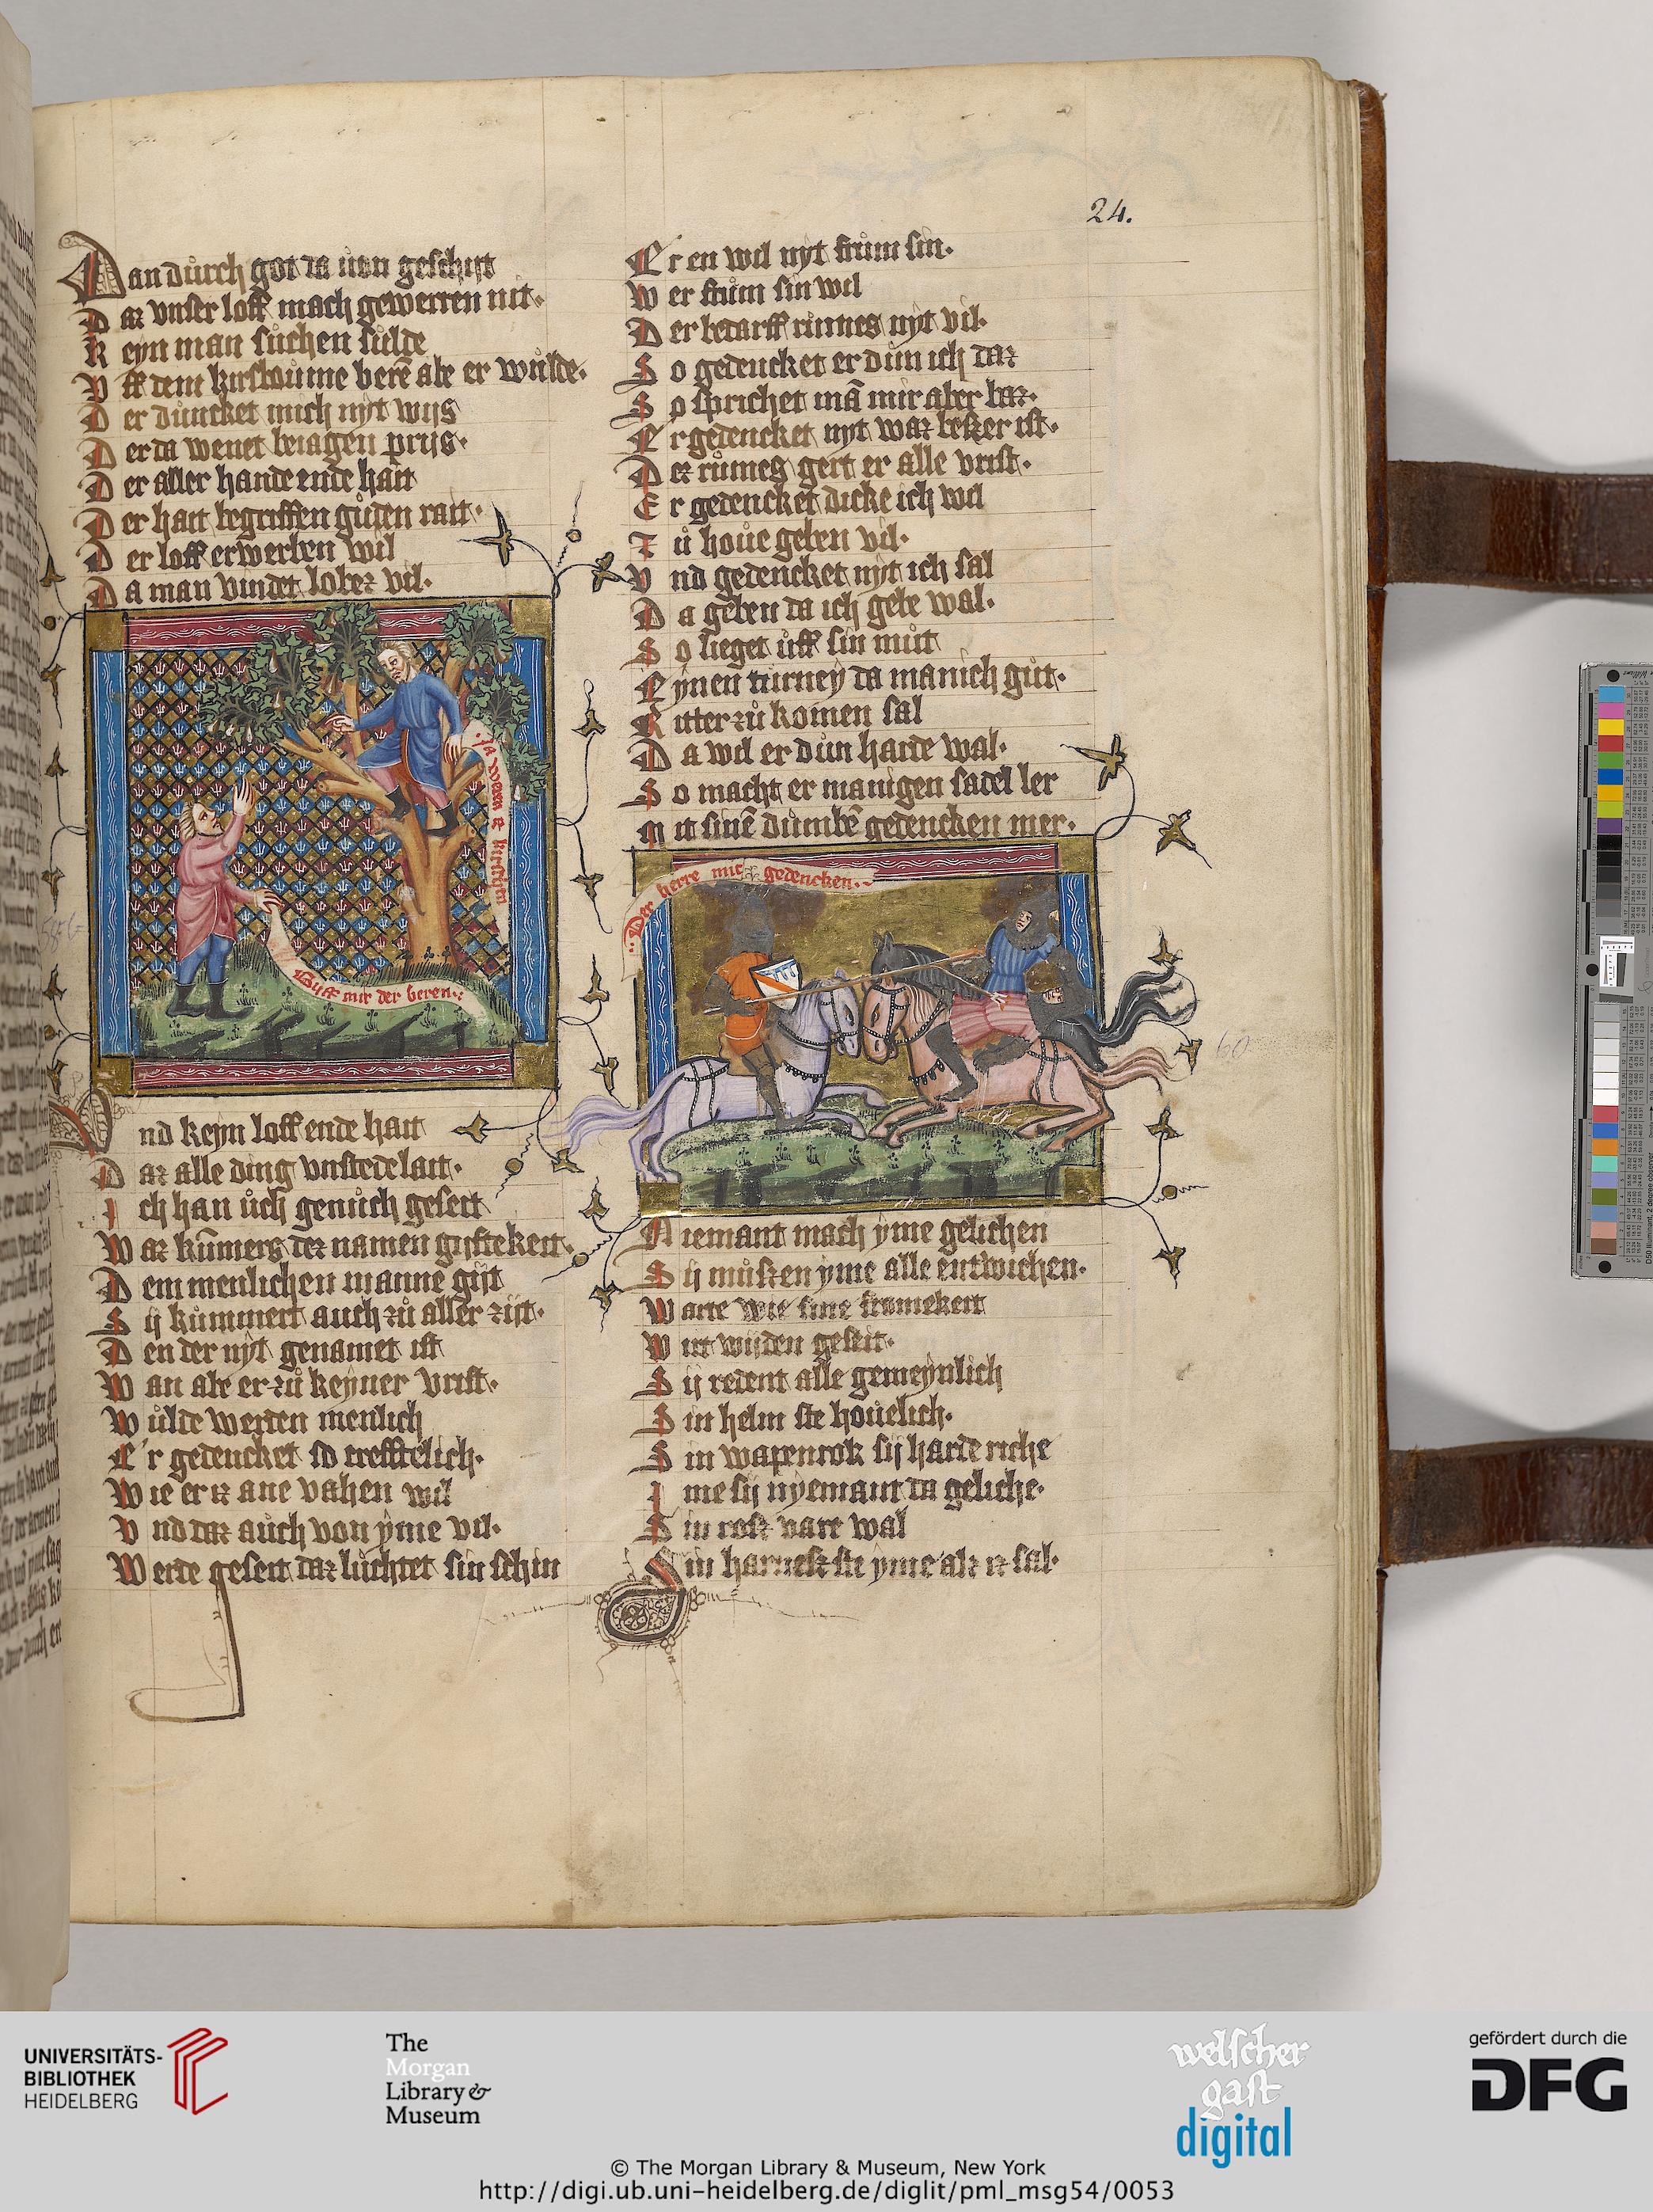 24.
Dan durch got da uon geschiet
Daz vnser loff mach gewerren nit.
Keyn man suchen sulde
Vff dem kirsboume berē abe er wulde.
Der duncket mich nyt wijs
Der da wenet beiagen prijs.
Der aller hande ende hait
Der hait begriffen guden rait.
Der loff erwerben wil
Da man vindet lobez vil.
Ja weren iz kirschen
Guff mir der beren
Vnd keyn loff ende hait
Daz alle ding vnstede lait.
Ich han uch genuch geseit
Waz kūmers dez namen gijtekeit.
Dem menlichen manne gijt
Sij kummert auch zu aller zijt.
Den der nyt genamet ist
Wan abe er zu keyner vrist.
Wulde werden menlich
Er gedencket so trefftelich.
Wie er iz ane vahen wil
Vnd daz auch von yme vil.
Werde geseit daz luchtet sin schin
Er en wil nyt frum sin.
Wer frum sin wil
Der bedarff rumes nyt vil.
So gedencket er dun ich daz
So sprichet mā mir aber baz.
Er gedencket nyt waz besser ist.
Dez rumes gert er alle vrist.
Er gedencket dicke ich wil
Zu houe geben vil.
Vnd gedencket nyt ich sal
Da geben da ich gebe wal.
So lieget uff sin mut
Eynen turney da manich gut.
Ritter zu komen sal
Da wil er dun harde wal.
So macht er manigen sadel ler
Mit sinē dumbē gedencken mer.
Der herre mit gedencken
Niemant mach yme gelichen
Sij mussen yme alle entwichen.
Warte wie sine fromekeit
Wirt wijden geseit.
Sij redent alle gemeynlich
Sin helm ste houelich.
Sin wapenrok sij harde riche
Ime sij nyemant da geliche.
Sin ross vart wal
Sin harnesk ste yme alz iz sal.
UNIVERSITÄTS-
BIBLIOTHEK
HEIDELBERG
The
Morgan
Library &
Museum
welscher
gast
digital
gefördert durch die
DFG
© The Morgan Library & Museum, New York
http://digi.ub.uni-heidelberg.de/diglit/pml_msg54/0053